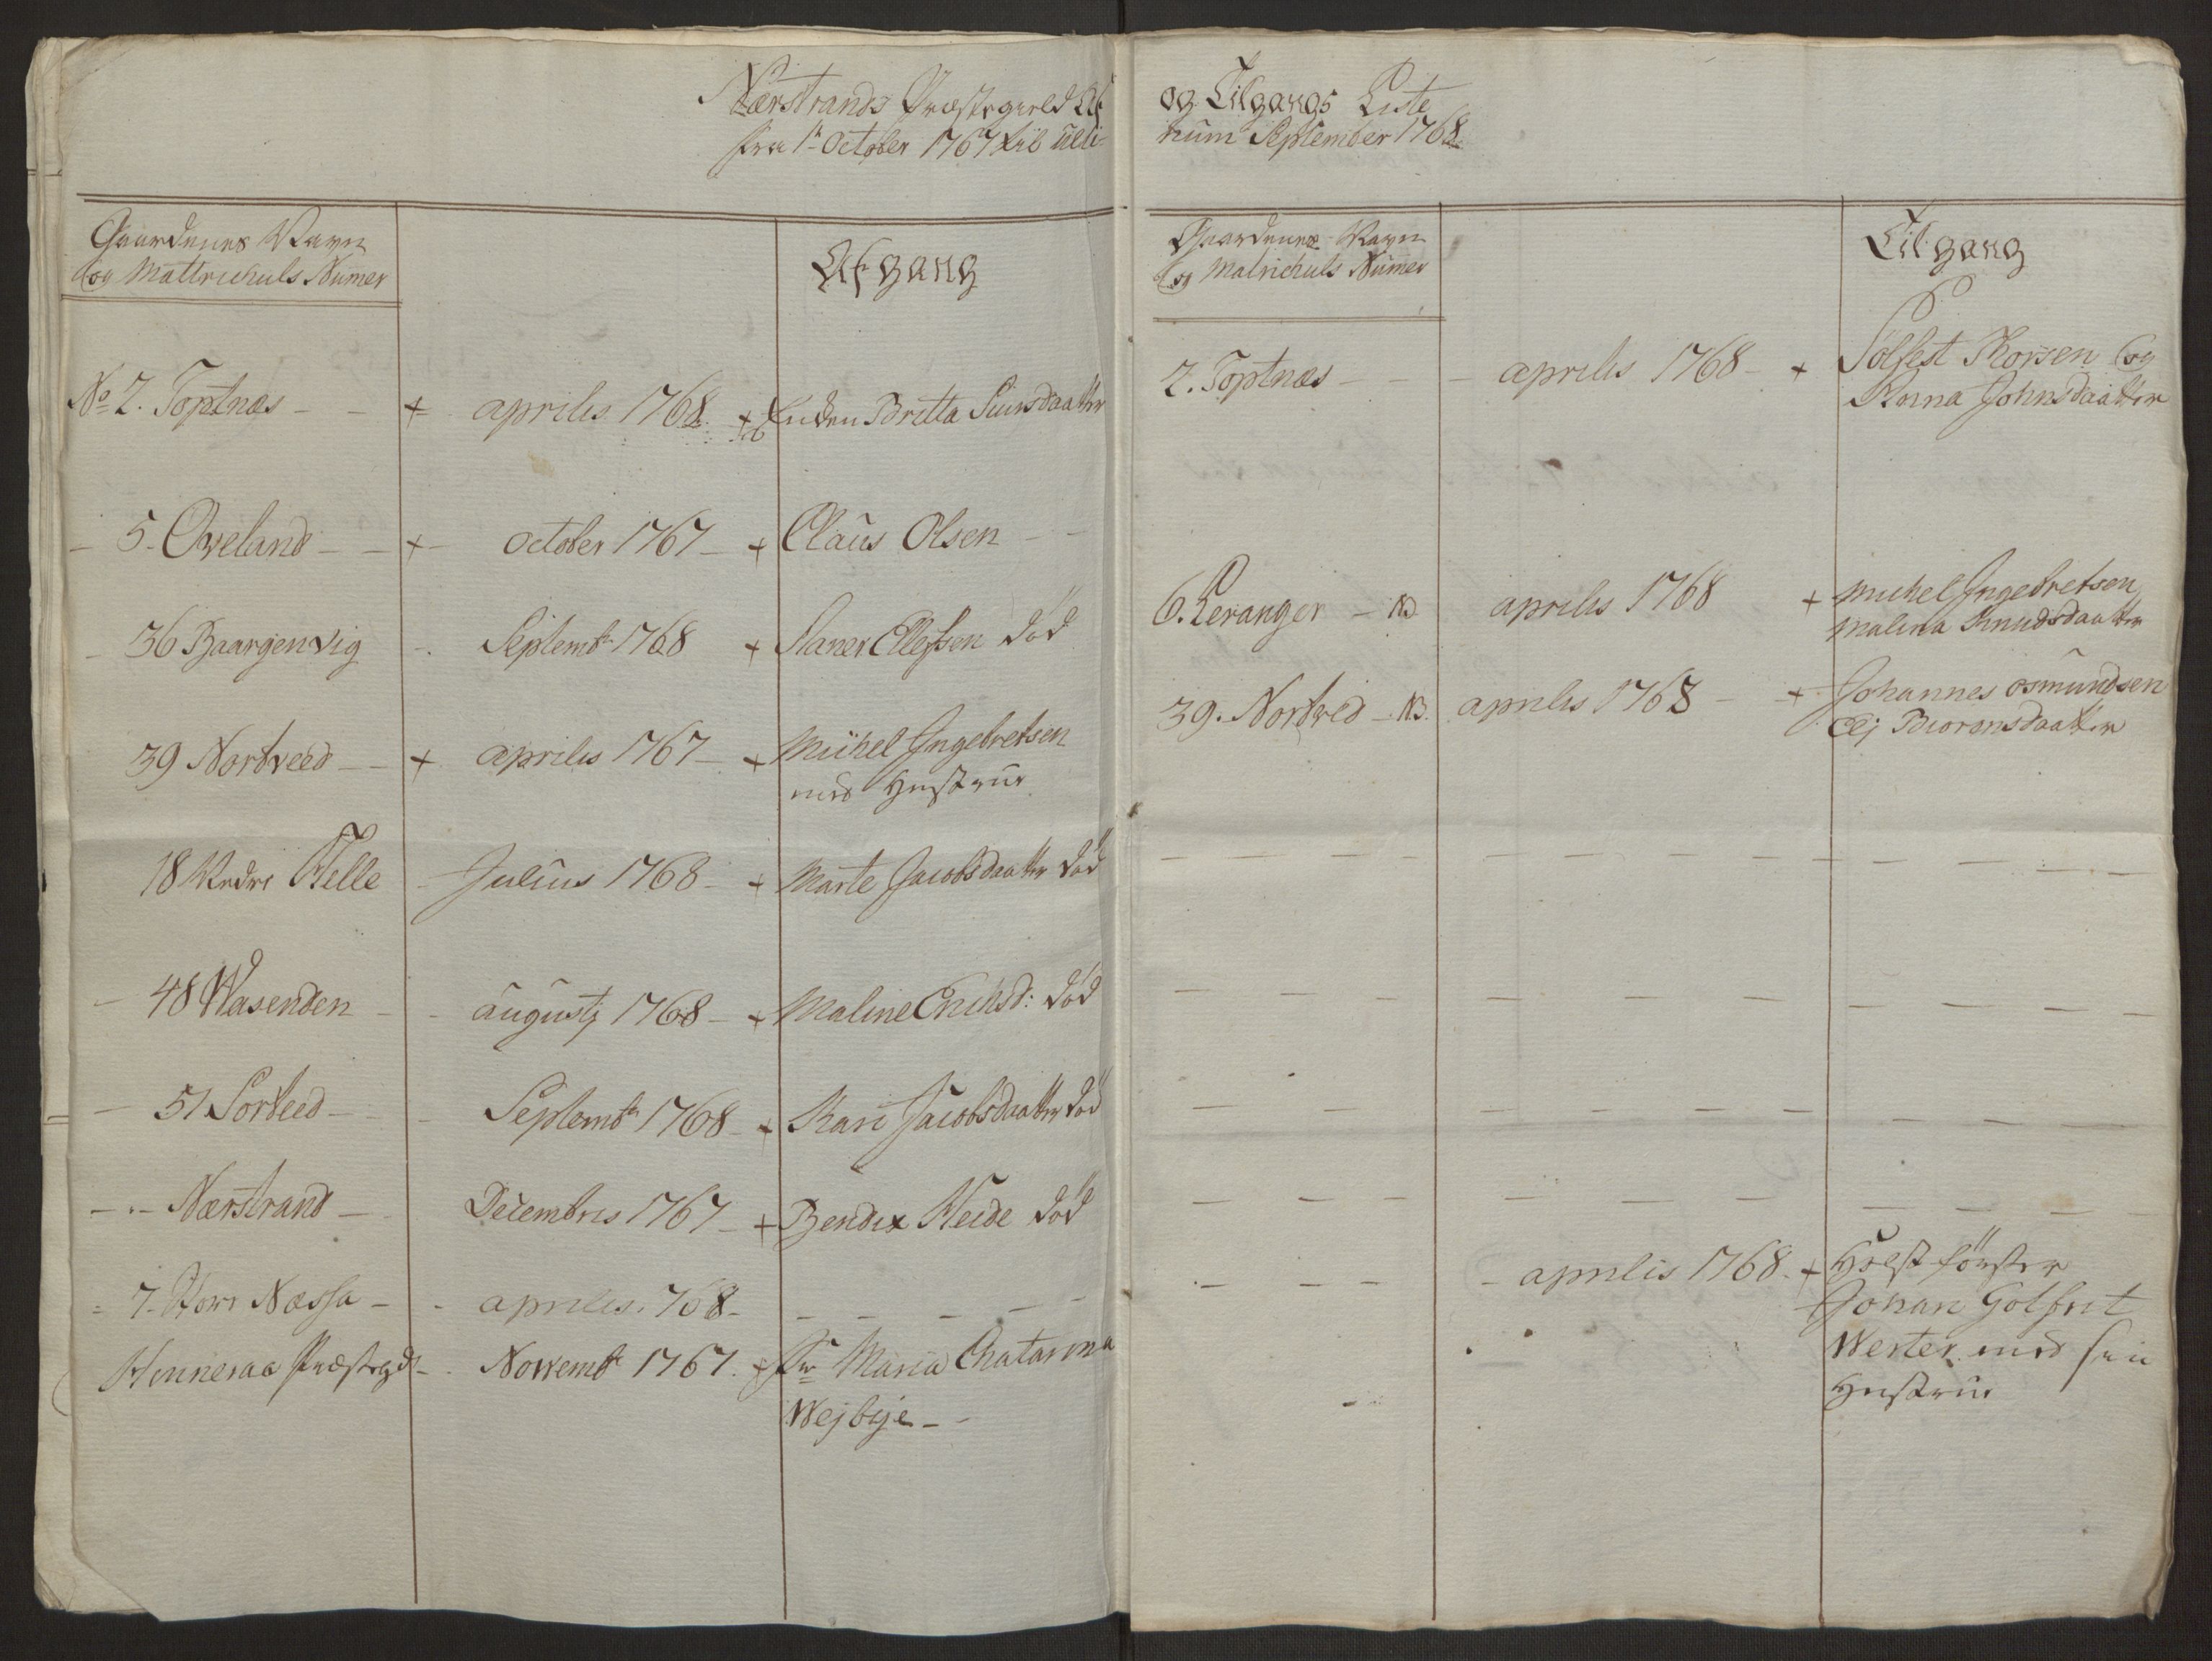 Nærstrands Præstegield Af
fra 1te October 1767 til ulti-
Gaardenes Navn
og Mattrichuls Numer
Afgang
No 2. Toptnæs - - + aprilis 1768. + Enken Britta Siursdaatter
- 5. Oveland - - + - October 1767 - + Claus Olsen - -
- 36 Baargenvig - . Septembr 1768 + Ellefsen död
39 Nortveed - - + aprilis 1767 - + Michel Ingebretsen
med Hustrue
18 Nedre Helle - Julius 1768 - + Marte Jacobsdaatter död
- 48 Wasenden - - augusty 1768 - + Maline Erichsd: död
- 51 Sorteed - - Septembr 1768 - + Kari Jacobsdaatter död
- .. - Nærstrand - Decembris 1767 - + Bendix Heide död
= 7. Næssa - - aprilis. 768 - - - - - -
Hinneraa Præstegd - . Novembr 1767. + Maria Chatarina
Wejbye - -
og Tilgangs Liste
mum September 1768.
Gaardenes Navn
og Matrichuls Numer
Tilgang
2. Toptnæs - - - aprilis 1768 - + Solfest Korsen og
Anna Johnsdaatter
6. Leranger - NB. aprilis 1768 + Michel Ingebretsen
Malina Knudsdaatter
39. Nortved - NB. aprilis 1768 - + Johannes Osmundsen
Elj Biorensdaatter
- aprilis 1768. + Holst förster
Johan Gotfrit
Werter med sin
Hustrue